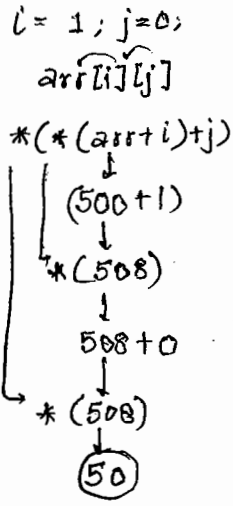 i = 1; j=0;
arr[i][j]
*(*(arr+i)+j)
(500+1)
*(508)
508+0
*(508)
50